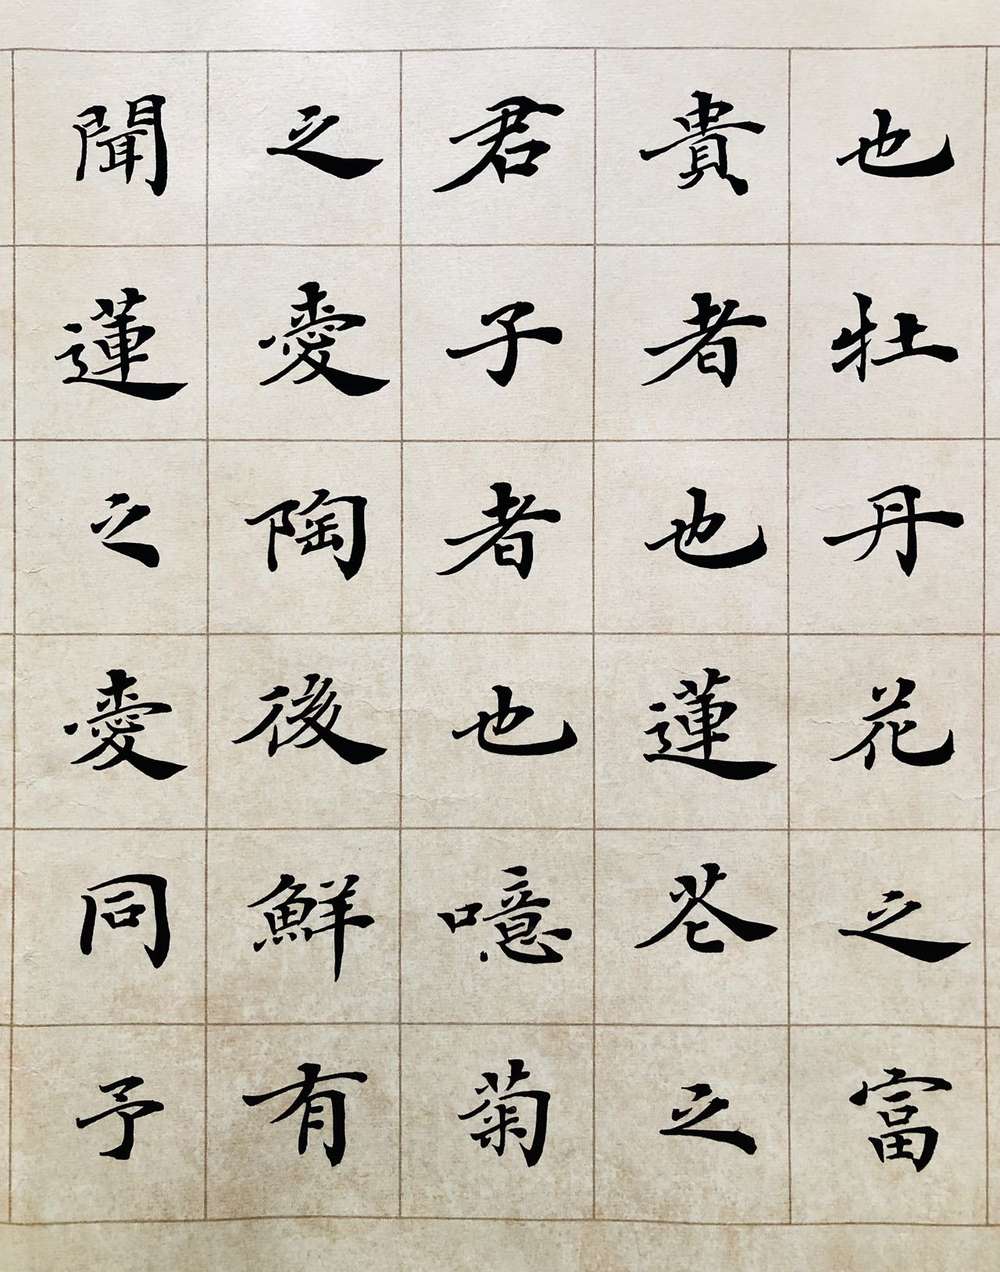 也牡丹花之富
貴者也蓮花之
君子者也噫菊
之愛陶後鮮有
聞蓮之愛同予